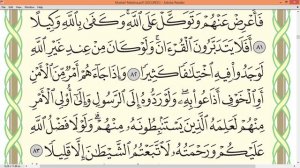 فَأَعْرِضْ عَنْهُمْ وَتَوَكَّلْ عَلَى ٱللَّهِ وَكَفَىٰ بِٱللَّهِ وَكِيلًا
٨١ أَفَلَا يَتَدَبَّرُونَ ٱلْقُرْءَانَ وَلَوْ كَانَ مِنْ عِندِ غَيْرِ ٱللَّهِ
لَوَجَدُوا۟ فِيهِ ٱخْتِلَٰفًا كَثِيرًا ٨٢ وَإِذَا جَآءَهُمْ أَمْرٌ مِّنَ ٱلْأَمْنِ
أَوِ ٱلْخَوْفِ أَذَاعُوا۟ بِهِۦ وَلَوْ رَدُّوهُ إِلَى ٱلرَّسُولِ وَإِلَىٰٓ أُو۟لِى ٱلْأَمْرِ
مِنْهُمْ لَعَلِمَهُ ٱلَّذِينَ يَسْتَنۢبِطُونَهُۥ مِنْهُمْ وَلَوْلَا فَضْلُ ٱللَّهِ
عَلَيْكُمْ وَرَحْمَتُهُۥ لَٱتَّبَعْتُمُ ٱلشَّيْطَٰنَ إِلَّا قَلِيلًا ٨٣